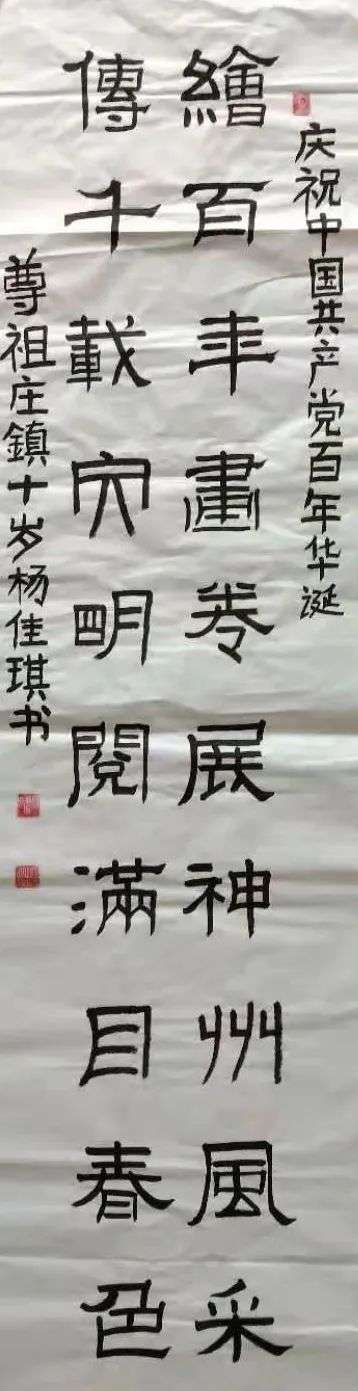 庆祝中国共产党百年华诞
繪百年畫卷展神州風采
傳千載文明閱滿目春色
尊祖庄鎮十岁杨佳琪书